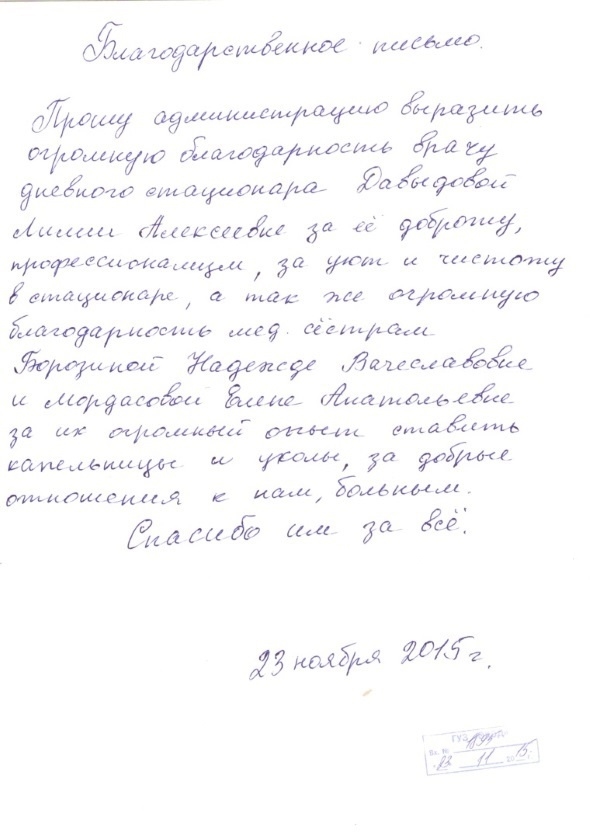 Благодарственное письмо.
Прошу администрацию выразить
огромную благодарность врачу
дневного стационара Давыдовой
Лилии Алексеевне за её доброту,
профессионализм, за уют и чистоту
в стационаре, а так же огромную
благодарность мед. сёстрам
Борозиной Надежде Вачеславовне
и Мордасовой Елене Анатольевне
за их огромный опыт ставить
капельницы и уколы, за добрые
отношения к нам, больным.
Спасибо им за всё.
23 ноября 2015 г.
ГУЗ
Вх. №
23 11 2015